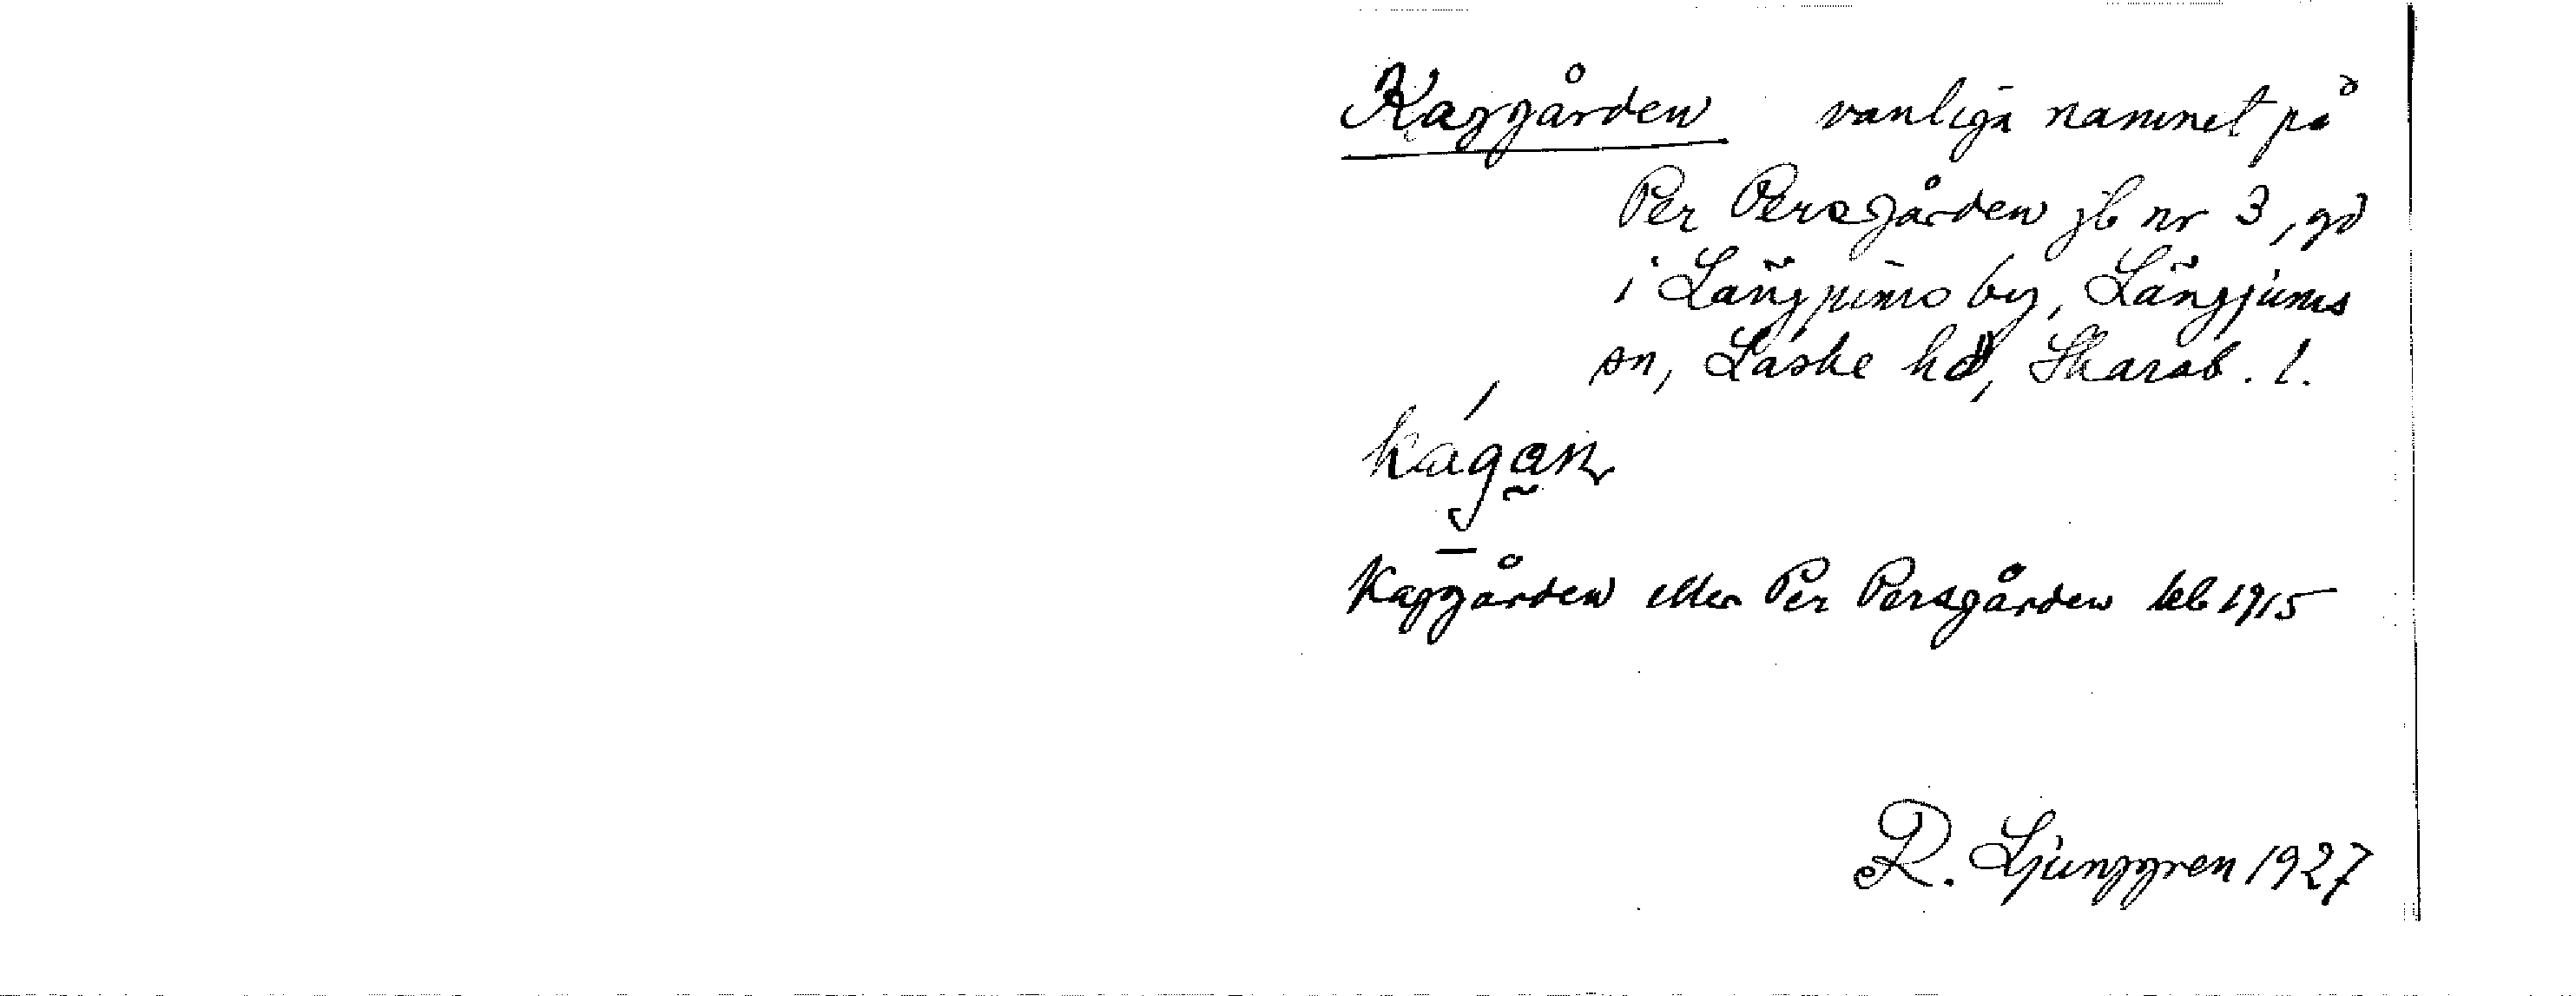 Kaggården vanliga namnet på
Per Persgården jb nr 3, gd
i Längjums by, Längjums
sn, Laske hd, Skarab. l.
Kaggården eller Per Persgården kb 1915
R. Ljunggren 1927